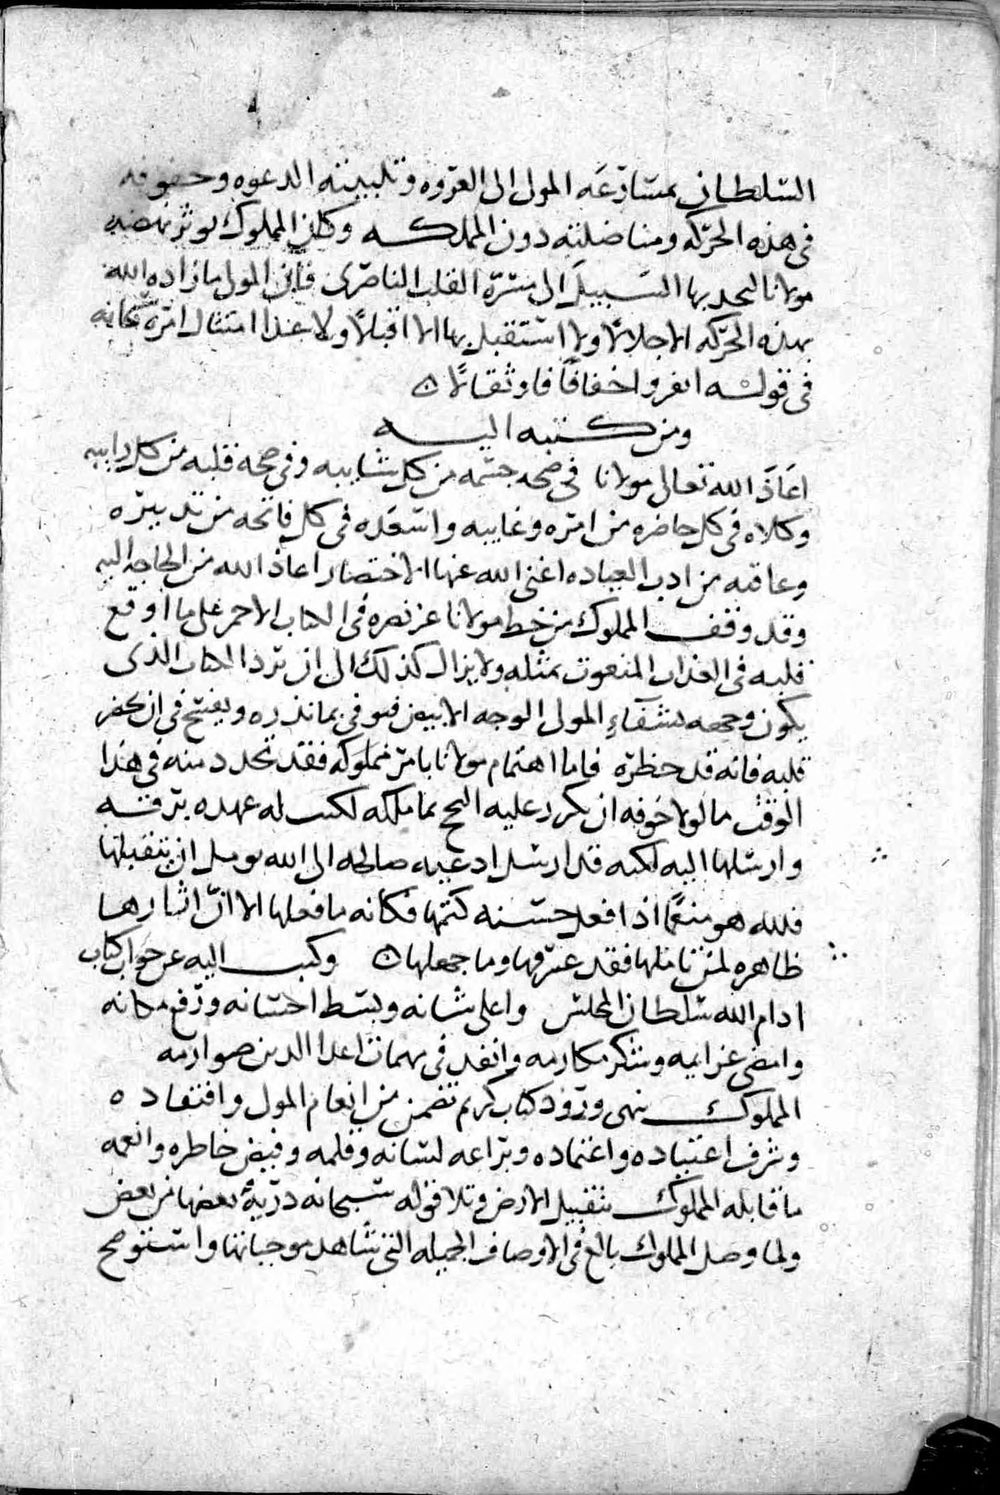 السلطان بمسارعه المولى الى الغزوه وتلبيته الدعوه وحفوفه
فى هذه الحركه ومناضلته دون المملكه وكان المملوك يوثر نهضه
مولانا ليجد بها السبيل الى مسرة القلب الناصرى فان المولى ما زاده الله
بهذه الحركه الا جلالا ولا استقبل بها الا اقبالا ولا عدا امتثال امره سبحانه
فى قوله انفروا خفافا وثقالا ن
ومن كتبه اليه
اعاذ الله تعالى مولانا فى صحه جسمه من كل شايبه وفى صحه قلبه من كل رايبه
وكلاه فى كل حاضره من امره وغايبه واسعده فى كل فاتحه من تدبيره
وعاقبه من ادب العياده اغنى الله عنها الاختصار اعاذ الله من الحاجه اليه
وقد وقف المملوك من خط مولانا عز نصره فى الكتاب الاحمر على ما اوقع
قلبه فى العذاب المنعوت بمثله ولا يزال كذلك الى ان ترد الكتاب الذى
يكون وجهه بشفاء المولى الوجه الابيض فيوفى بما نذره ويفتح فى ان
قلبه فانه قد حظره فاما اهتمام مولانا بامر مملوكه فقد تجدد منه فى هذا
الوقت ما لولا خوفه ان يكرر عليه الحج بما ملكه لكتب له عهده برقه
وارسلها اليه لكنه قد ارسل ادعيه صالحه الى الله يومل ان يتقبلها
فلله هو منعما اذا فعل حسنه كتمها فكانه ما فعلها الا ان اثارها
ظاهره لمن تاملها فقد عرفها وما جهلها ن وكتب اليه عن جواب كتاب
ادام الله سلطان المجلس واعلى شانه وبسط احسانه ورفع مكانه
وامضى عزايمه وشكر مكارمه وانفذ فى مهمات اعدا الدين صوارمه
المملوك ينهى ورود كتاب كريم تضمن من انعام المولى وافتقاده
وشرف اعتياده واعتماده وبراعه لسانه وقلمه وفيض خاطره وانعمه
ما قابله المملوك بتقبيل الارض وتلا قوله سبحانه ذرية بعضها من بعض
ولما وصل المملوك بالغ فى الاوصاف الجميله التى شاهد موجباتها واستوضح